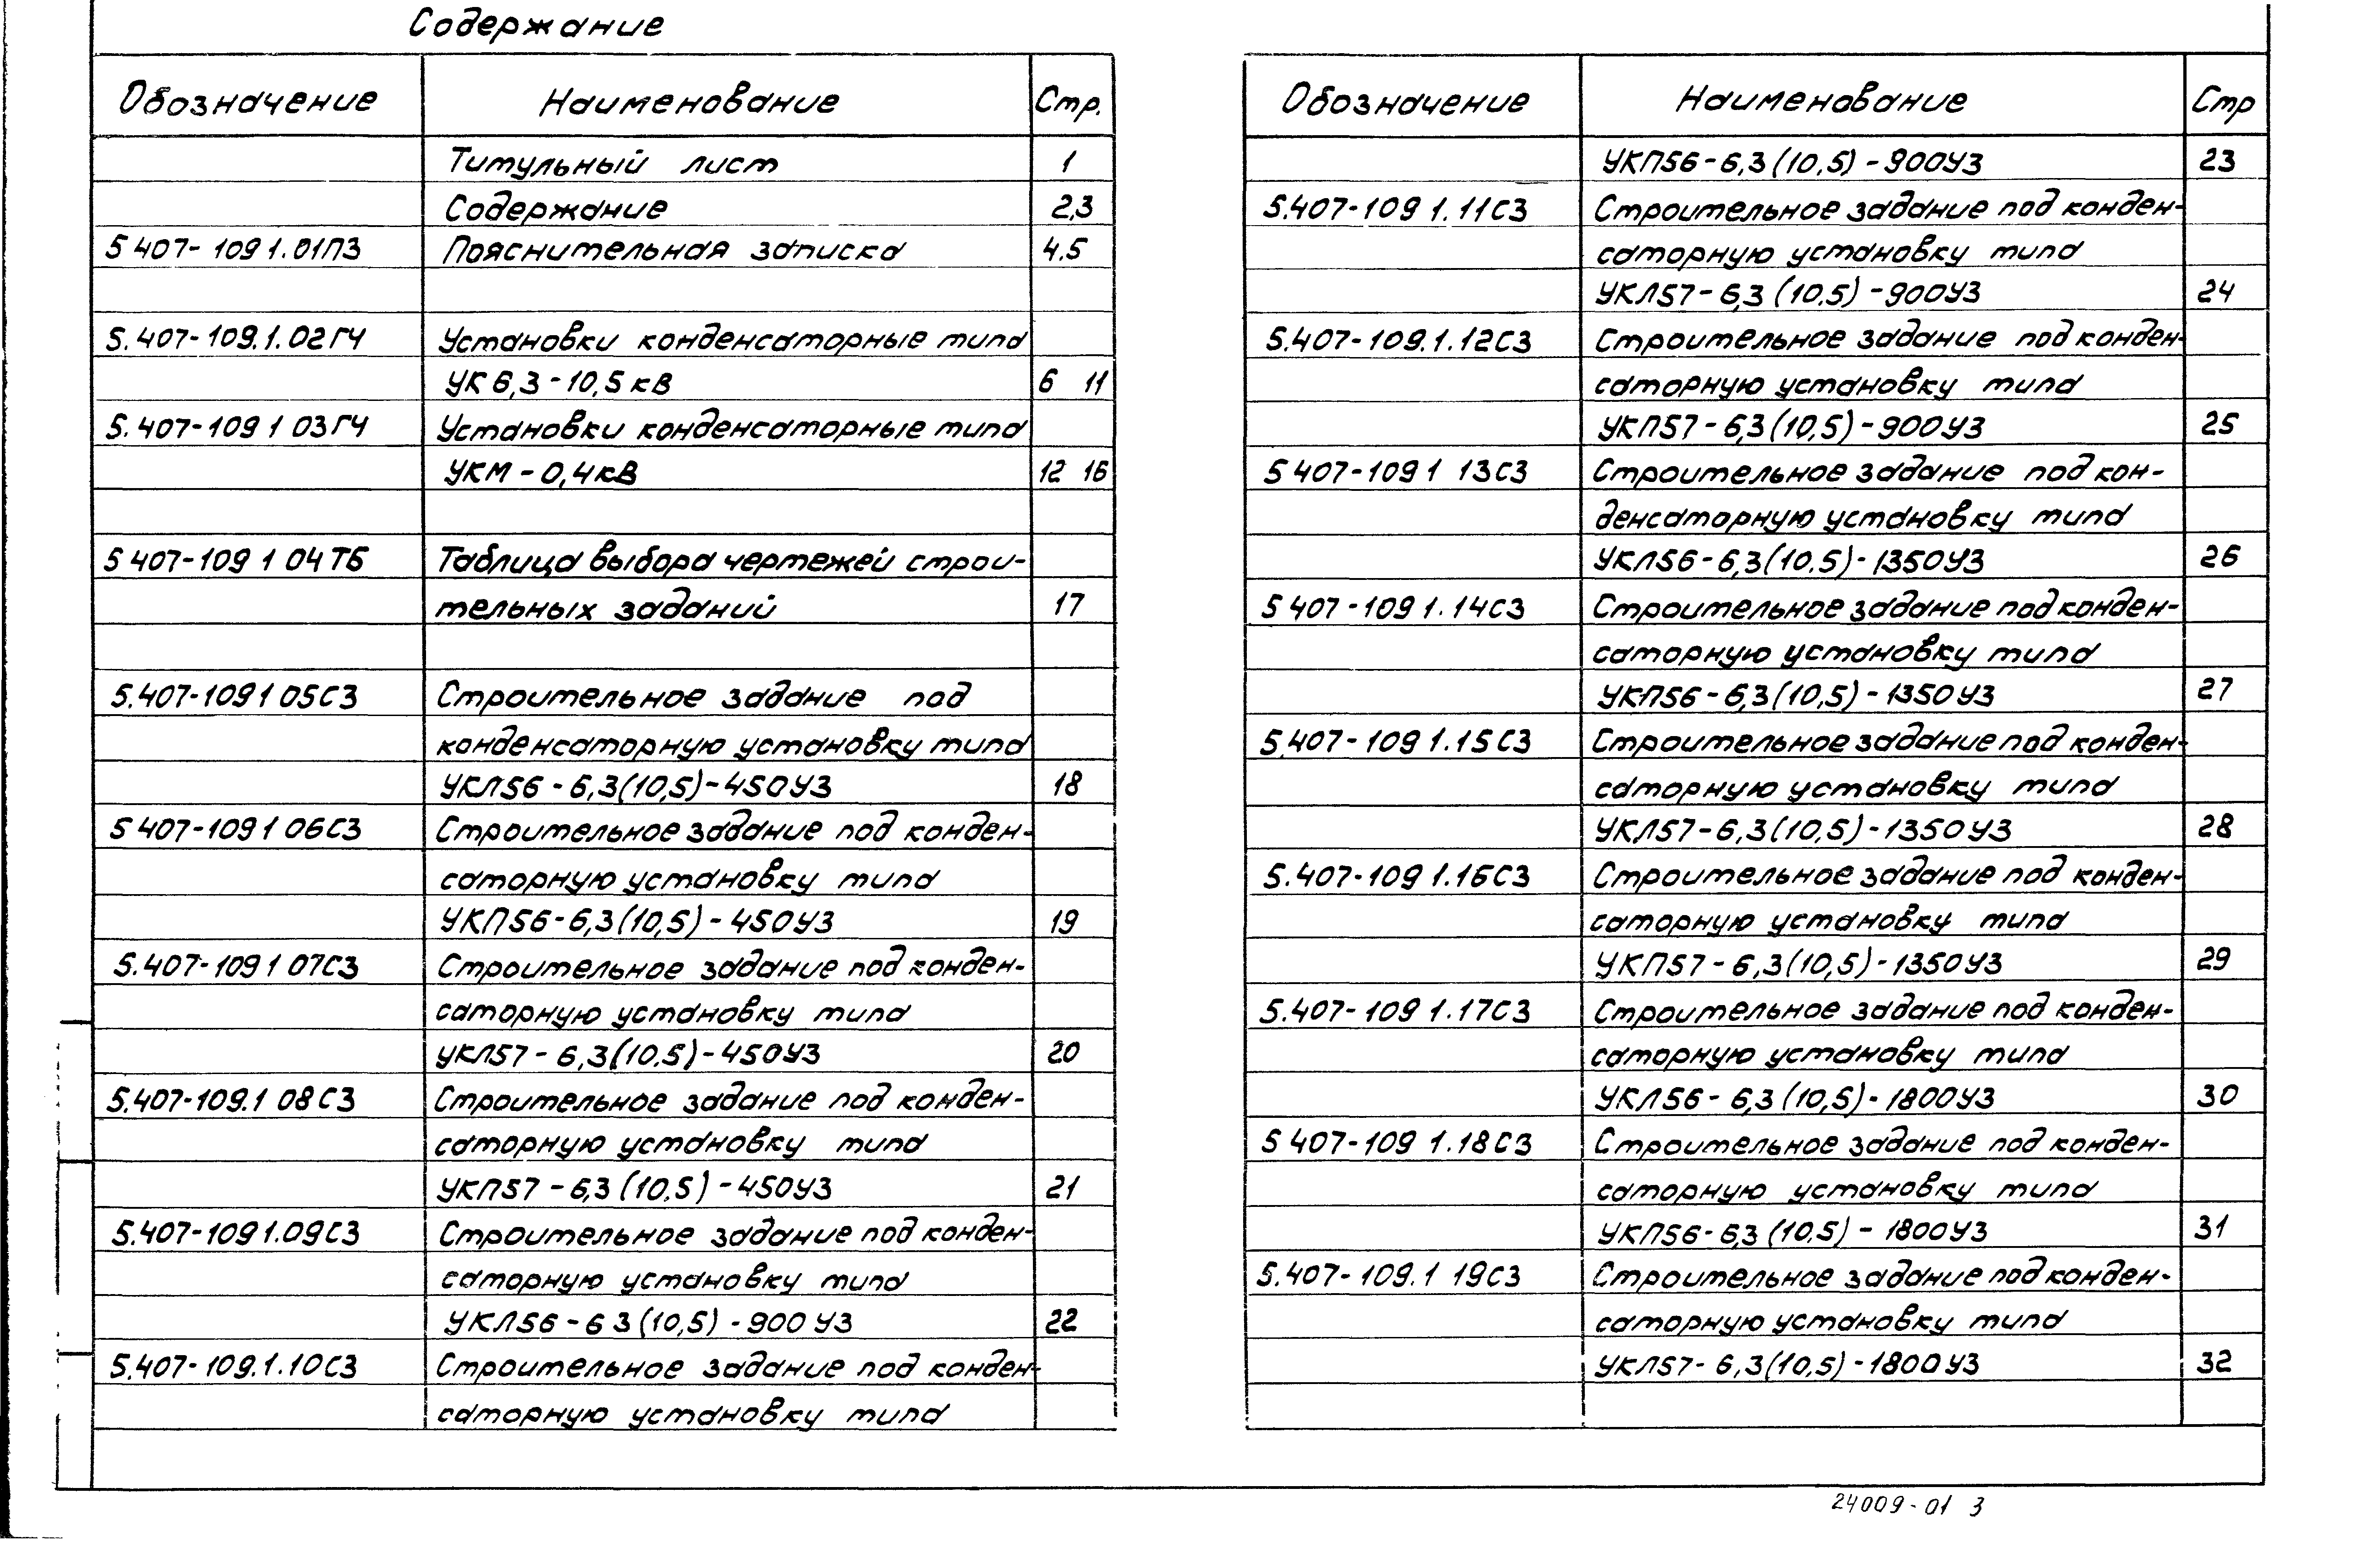 Содержание
Обозначение Наименование Стр.
Титульный лист 1
Содержание 2,3
5 407-109 1.01ПЗ Пояснительная записка 4.5
5.407-109.1.02ГЧ Установки конденсаторные типа
УК 6,3-10,5 кВ 6 11
5.407-109 1 03ГЧ Установки конденсаторные типа
УКМ-0,4кВ 12 16
5 407-109 1 04ТБ Таблица выбора чертежей строи-
тельных заданий 17
5.407-109 1 05СЗ Строительное задание под
конденсаторную установку типа
УКЛ56-6,3(10,5)-450У3 18
5 407-109 1 06СЗ Строительное задание под конден-
саторную установку типа
УКП56-6,3(10,5)-450У3 19
5.407-109 1 07СЗ Строительное задание под конден-
саторную установку типа
УКЛ57-6,3(10.5)-450У3 20
5.407-109.1 08СЗ Строительное задание под конден-
саторную установку типа
УКП57-6,3(10.5)-450У3 21
5.407-109 1.09СЗ Строительное задание под конден-
саторную установку типа
УКЛ56-6 3(10,5)-900У3 22
5.407-109.1.10СЗ Строительное задание под конден-
саторную установку типа
Обозначение Наименование Стр
УКП56-6,3(10,5)-900У3 23
5.407-109 1.11СЗ Строительное задание под конден-
саторную установку типа
УКЛ57-6,3(10.5)-900У3 24
5.407-109.1.12СЗ Строительное задание под конден-
саторную установку типа
УКП57-6,3(10,5)-900У3 25
5 407-109 1 13СЗ Строительное задание под кон-
денсаторную установку типа
УКЛ56-6,3(10.5)-1350У3 26
5 407-109 1.14СЗ Строительное задание под конден-
саторную установку типа
УКП56-6,3(10,5)-1350У3 27
5.407-109 1.15СЗ Строительное задание под конден-
саторную установку типа
УКЛ57-6,3(10,5)-1350У3 28
5.407-109 1.16СЗ Строительное задание под конден-
саторную установку типа
УКП57-6,3(10,5)-1350У3 29
5.407-109 1.17СЗ Строительное задание под конден-
саторную установку типа
УКЛ56-6,3(10,5)-1800У3 30
5 407-109 1.18СЗ Строительное задание под конден-
саторную установку типа
УКП56-6,3(10.5)-1800У3 31
5.407-109.1 19СЗ Строительное задание под конден-
саторную установку типа
УКЛ57-6,3(10,5)-1800У3 32
24009-01 3